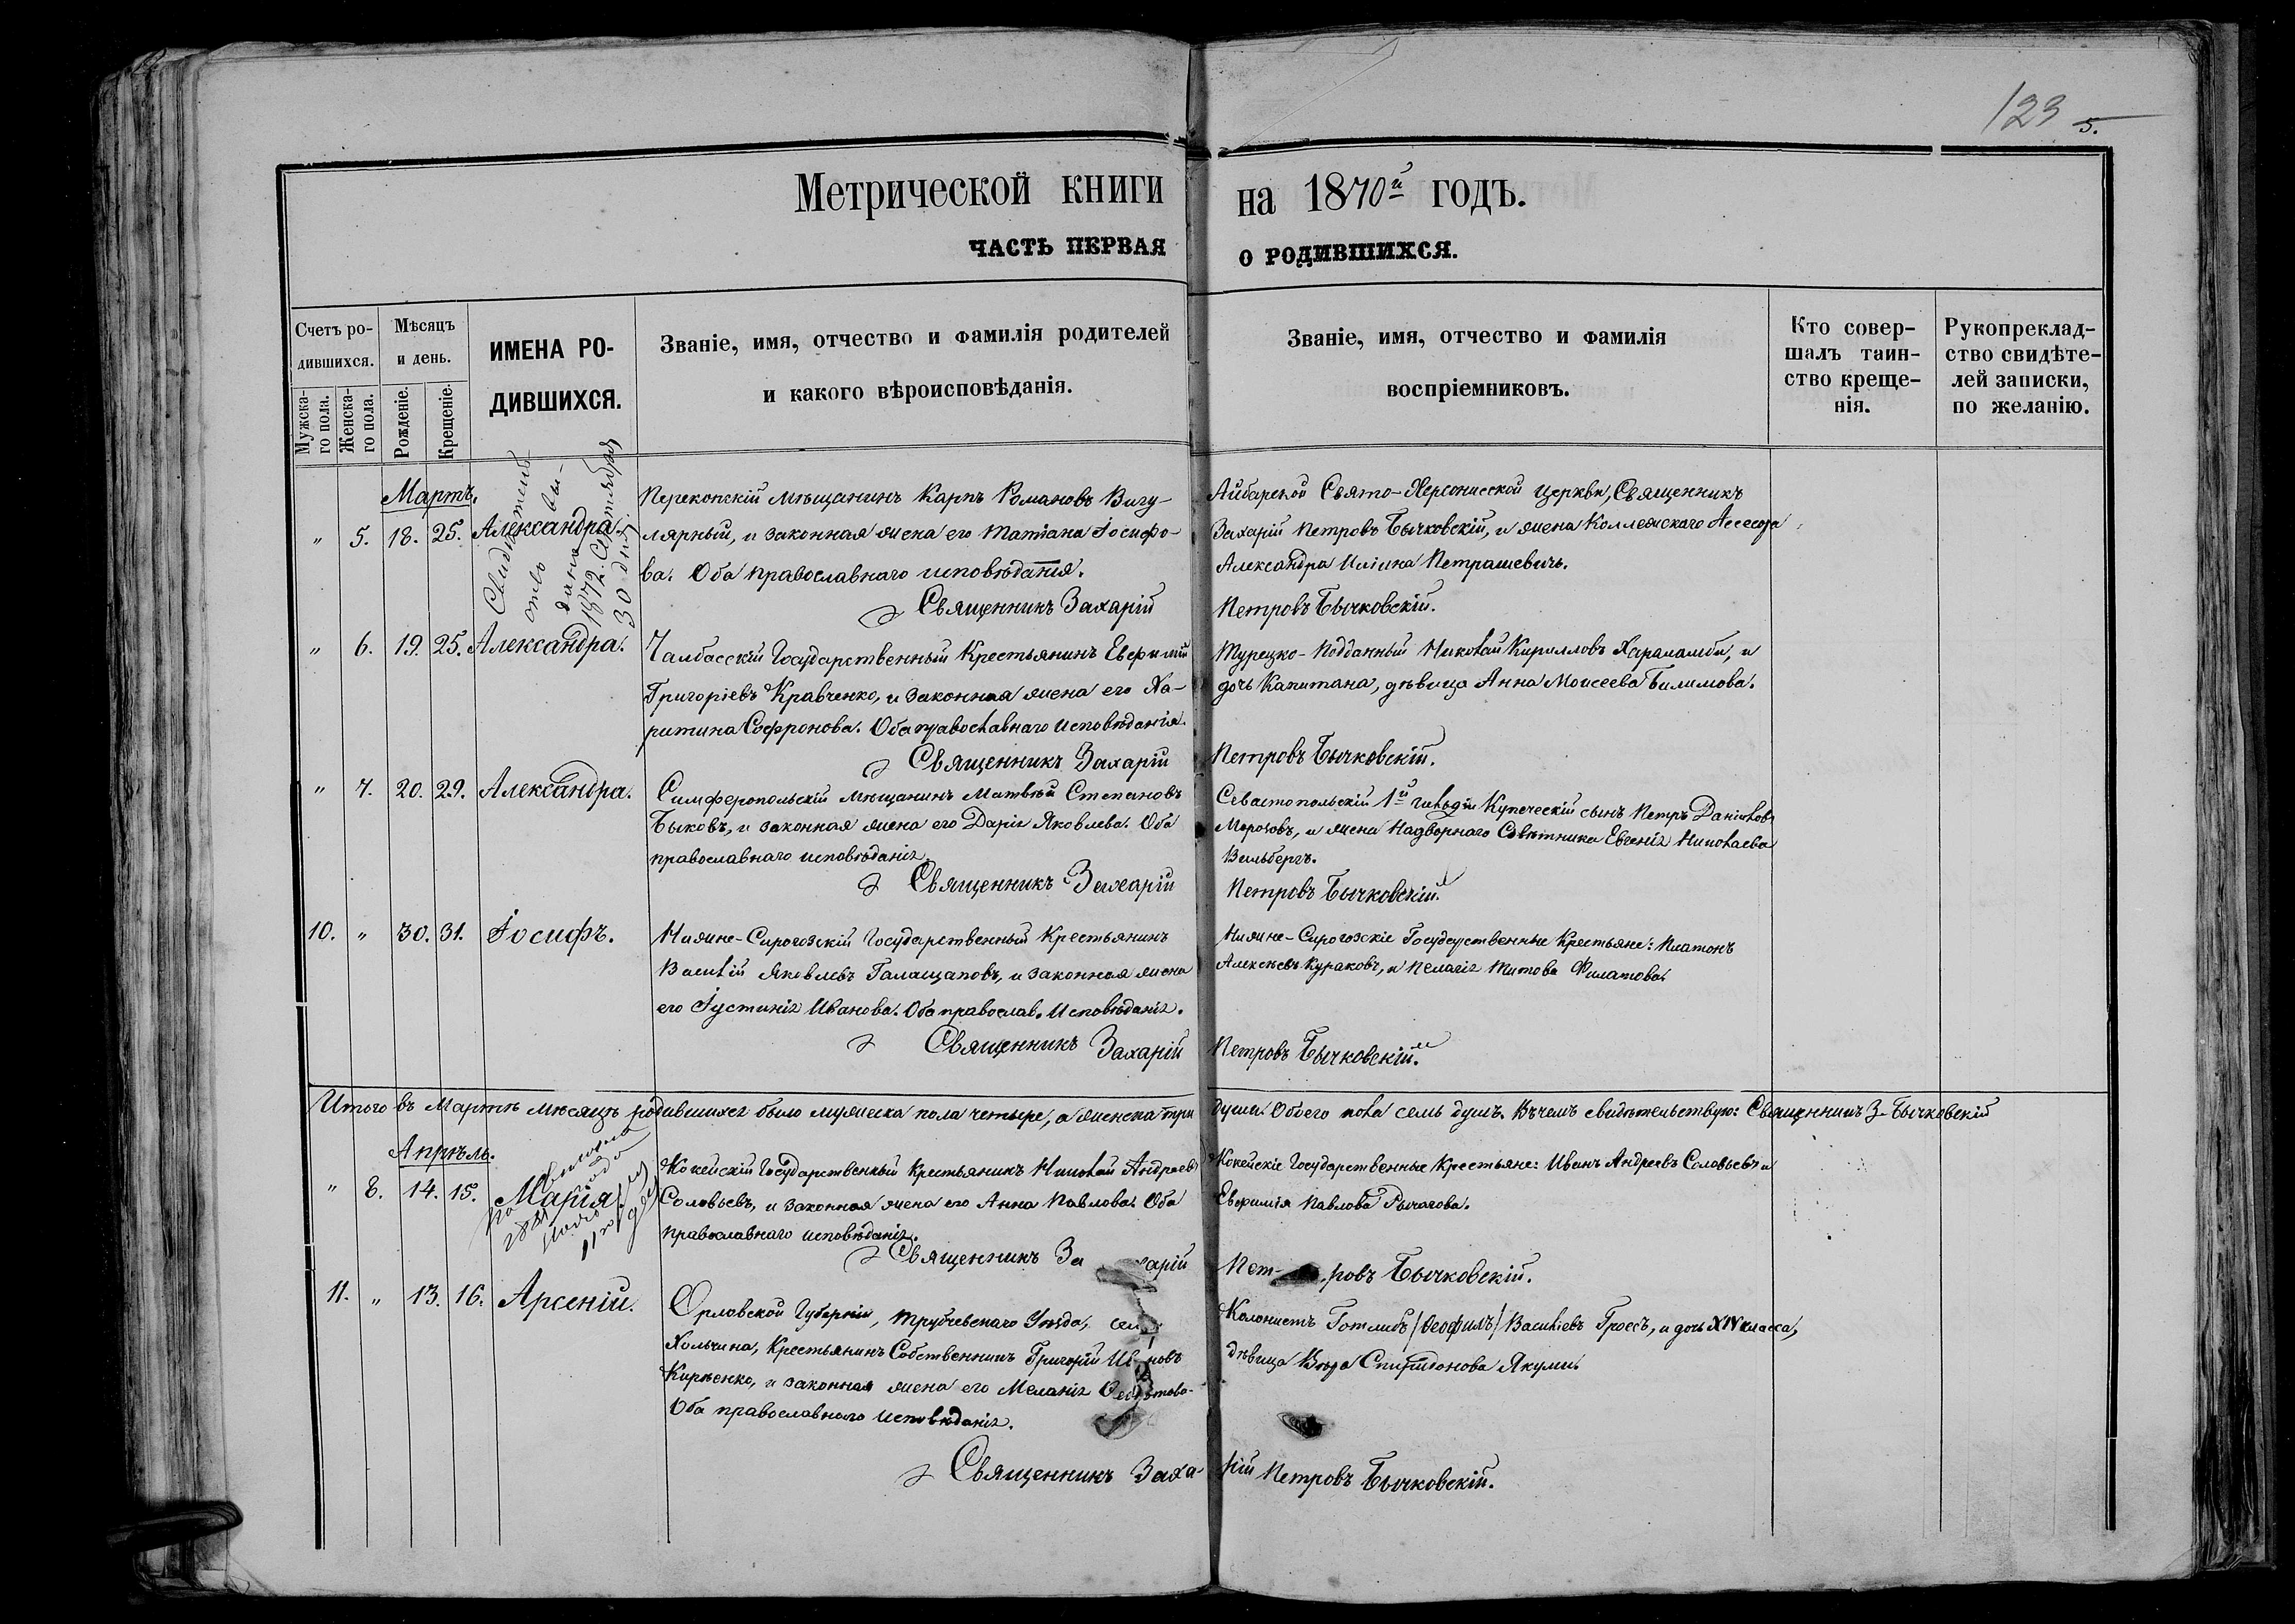 123
5.
Метрической книги на 1870й годъ.
ЧАСТЬ ПЕРВАЯ О РОДИВШИХСЯ.
Счетъ ро-
дившихся.
Мужска-
го пола.
Женска-
го пола.
Мѣсяцъ
и день.
Рожденіе.
Крещеніе.
ИМЕНА РО-
ДИВШИХСЯ.
Званіе, имя, отчество и фамилія родителей
и какого вѣроисповѣданія.
Званіе, имя, отчество и фамилія
воспріемниковъ.
Кто совер-
шалъ таин-
ство креще-
нія.
Рукопреклад-
ство свидѣте-
лей записки,
по желанію.
Мартъ.
" 5. 18. 25. Александра.
Свидетель-
ство вы-
дано
1872. Сентября
30 дня.
Перекопскій мѣщанинъ Карпъ Романовъ Вигу-
лярный, и законная жена его Татіана Іосифо-
ва. Оба православнаго исповѣданія.
Айбарской Свято-Херсонисской церкви, Священникъ
Захарій Петровъ Бычковскій, и жена Коллежскаго Асесора
Александра Иліина Петрашевичъ.
Священникъ Захарій Петровъ Бычковскій.
" 6. 19. 25. Александра.
Чалбасскій Государственный Крестьянинъ Евфимій
Григоріевъ Кравченко, и законная жена его Ха-
ритина Софронова. Оба православнаго исповѣданія.
Турецко-подданный Николай Кирилловъ Хараламби, и
дочь Капитана, дѣвица Анна Моисеева Билимова.
Священникъ Захарій Петровъ Бычковскій.
" 7. 20. 29. Александра.
Симферопольскій мѣщанинъ Матвѣй Степановъ
Быковъ, и законная жена его Дарія Яковлева. Оба
православнаго исповѣданія.
Севастопольскій 1й гильдіи Купеческій сынъ Петръ Даніиловъ
Морозовъ, и жена Надворнаго Совѣтника Евгенія Николаева
Вильбергъ.
Священникъ Захарій Петровъ Бычковскій.
10. " 30. 31. Іосифъ.
Нижне-Сирогозскій Государственный Крестьянинъ
Василій Яковлевъ Галащаповъ, и законная жена
его Іустинія Иванова. Оба православ. исповѣданія.
Нижне-Сирогозскіе Государственные Крестьяне: Платонъ
Алексѣевъ Кураковъ, и Пелагія Титова Филатова.
Священникъ Захарій Петровъ Бычковскій.
Итого въ Мартѣ мѣсяцѣ родившихся было мужеска пола четыре, а женска три души. Обоего пола семь душъ. Въ чемъ свидѣтельствую: Священникъ З. Бычковскій
Апрѣль.
" 8. 14. 15. Марія
1881 года
11
Кокейскій Государственный Крестьянинъ Николай Андреевъ
Соловьевъ, и законная жена его Анна Павлова. Оба
православнаго исповѣданія.
Кокейскіе Государственные Крестьяне: Иванъ Андреевъ Соловьевъ и
Евфимія Павлова Рычагова.
Священникъ За харій Пет- ровъ Бычковскій.
11. " 13. 16. Арсеній.
Орловской Губерніи, Трубчевскаго Уѣзда, села
Хольчина, Крестьянинъ Собственникъ Григорій Ивановъ
Кирѣенко, и законная жена его Меланія Ѳедотова.
Оба православнаго исповѣданія.
Колонистъ Готлибъ /Ѳеофилъ/ Васильевъ Гроссъ, и дочь XIV класса,
дѣвица Вѣра Спиридонова Якуми.
Священникъ Заха- рій Петровъ Бычковскій.